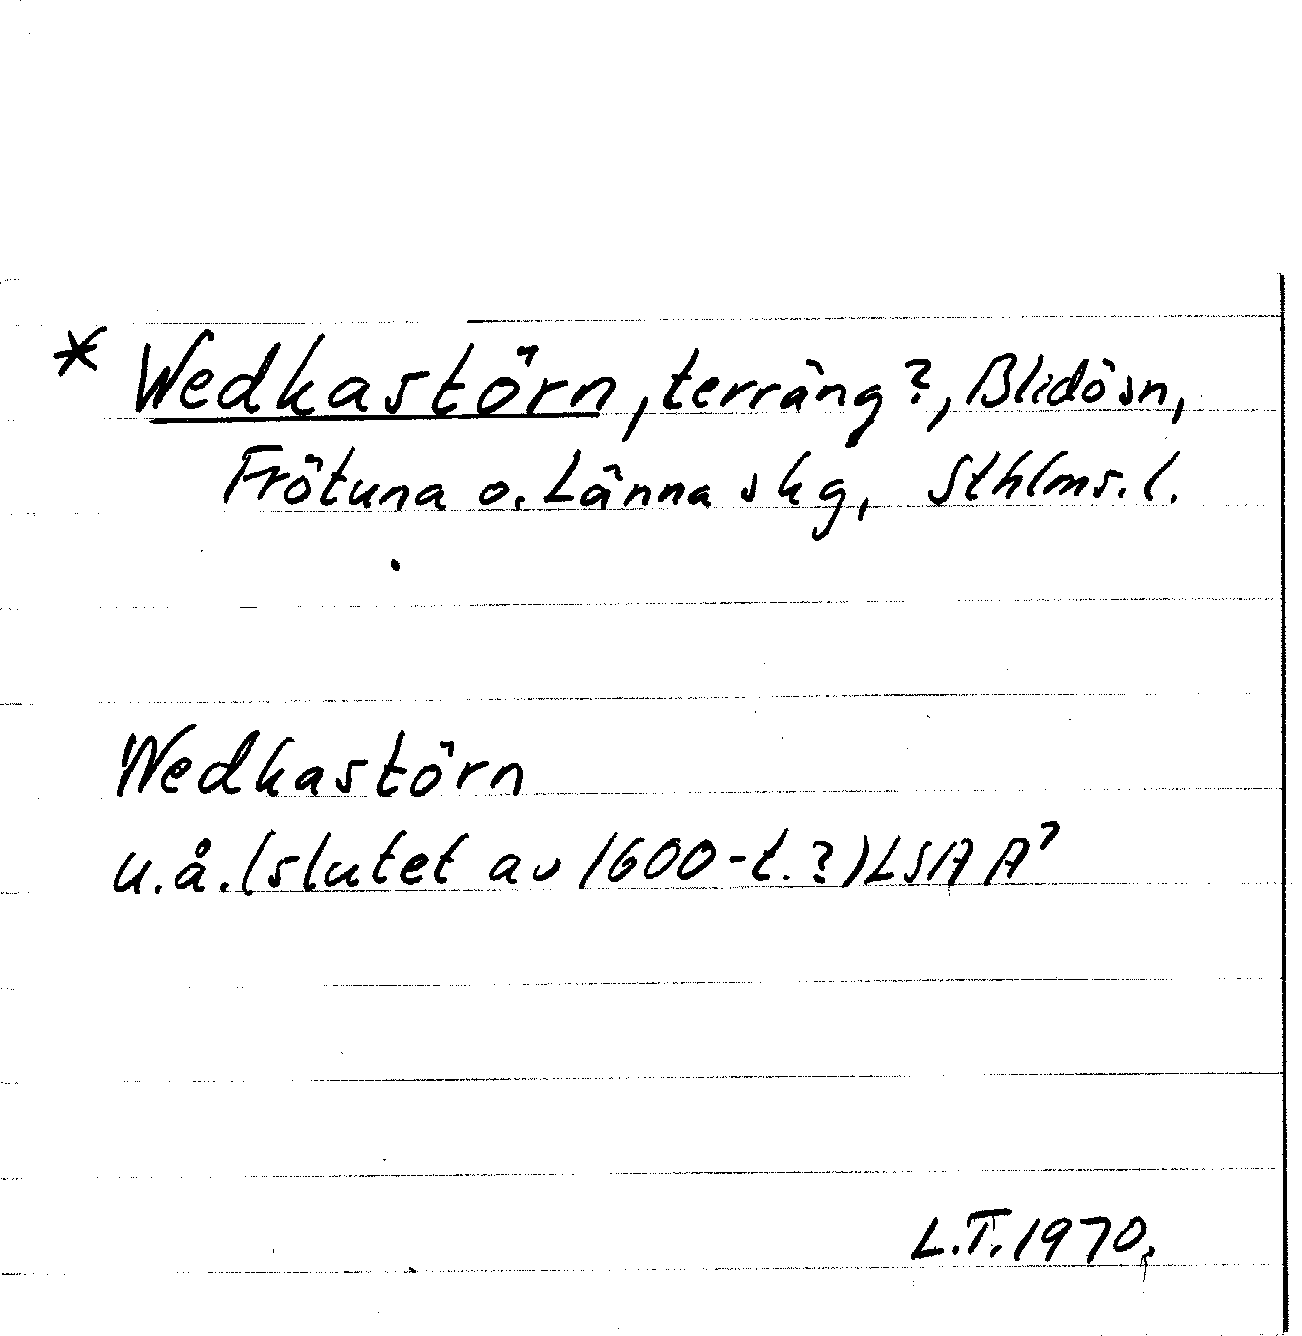 * Wedkastörn, terräng?, Blidösn,
Frötuna o. Länna skg, Sthlms. l.
Wedkastörn
u.å. (slutet av 1600-t.?) LSA A⁷
L.T. 1970.